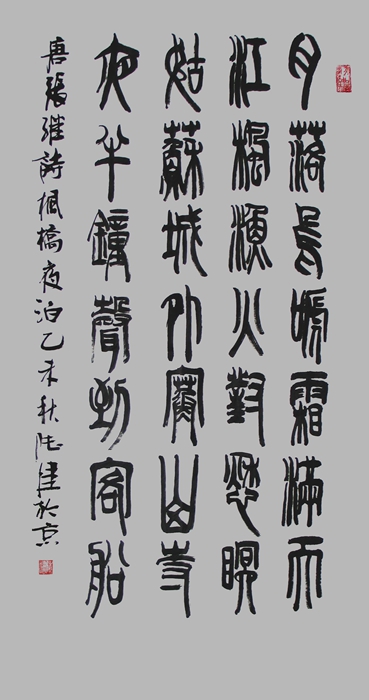 月落烏啼霜滿天
江楓漁火對愁眠
姑蘇城外寒山寺
夜半鐘聲到客船
唐張繼詩楓橋夜泊乙未秋於京